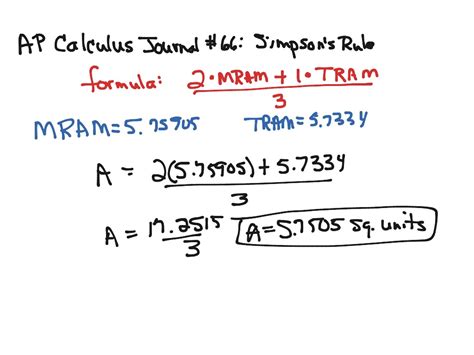 AP Calculus Journal #66: Simpson's Rule
formula: 2·MRAM + 1·TRAM
3
MRAM=5.75905 TRAM=5.7334
A = 2(5.75905) + 5.7334
3
A = 17.2515
3
A=5.7505 sq. units